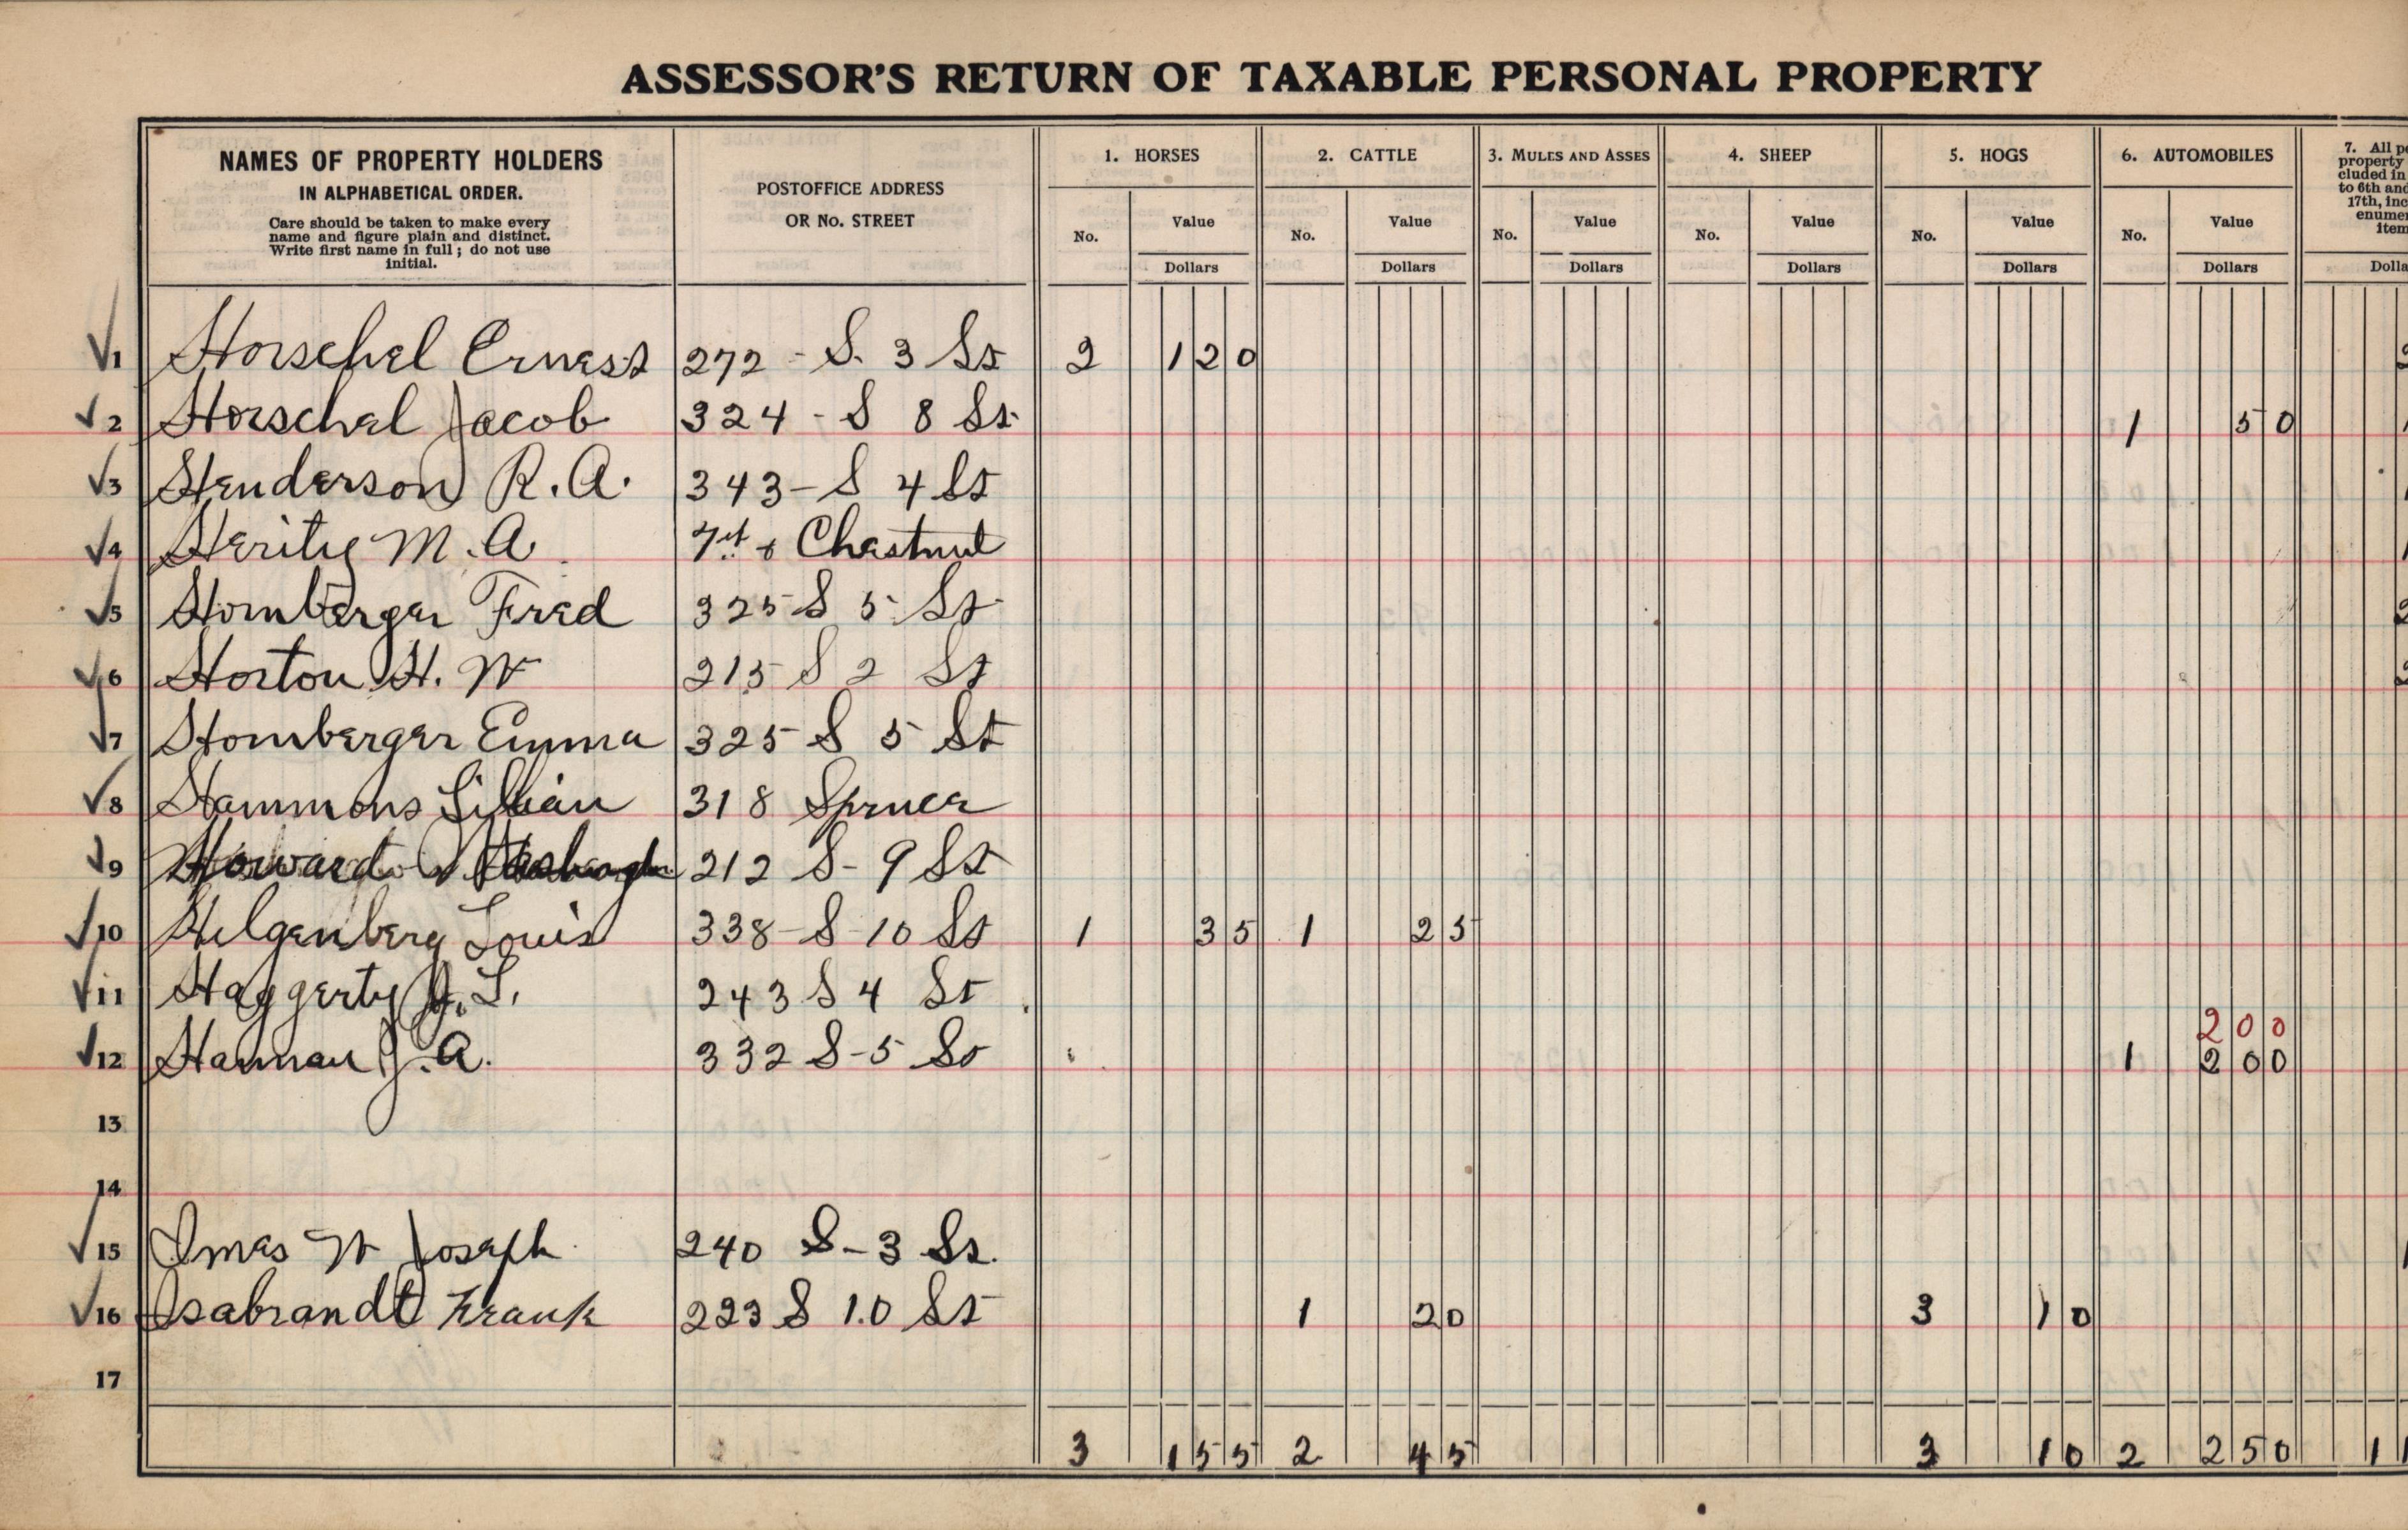 ASSESSOR'S RETURN OF TAXABLE PERSONAL PROPERTY
NAMES OF PROPERTY HOLDERS
IN ALPHABETICAL ORDER.
Care should be taken to make every
name and figure plain and distinct.
Write first name in full; do not use
initial.
POSTOFFICE ADDRESS
OR No. STREET
1. HORSES
No. Value
Dollars
2. CATTLE
No. Value
Dollars
3. MULES AND ASSES
No. Value
Dollars
4. SHEEP
No. Value
Dollars
5. HOGS
No. Value
Dollars
6. AUTOMOBILES
No. Value
Dollars
7. All
property
cluded in
to 6th and
17th,
1 Horschel Ernest 272 - S. 3 St 2 120
2 Horschel Jacob 324 - S 8 St. 1 50
3 Henderson R. A. 343 - S 4 St
4 Herity M. A 7st & Chestnut
5 Homberger Fred 325 S 5 St
6 Horton H. W 215 S 2 St
7 Homberger Emma 325 S 5 St
8 Hammons Lillian 318 Spruce
9 Howard 212 S - 9 St
10 Hilgenberg Louis 338 - S - 10 St 1 35 1 25
11 Haggerty J. L. 243 S 4 St
200
12 Hannan J. A. 332 S - 5 St 1 200
13
14
15 Imes W Joseph 240 S - 3 St.
16 Isabrandt Frank 223 S 10 St 1 20 3 10
17
3 155 2 45 3 10 2 250